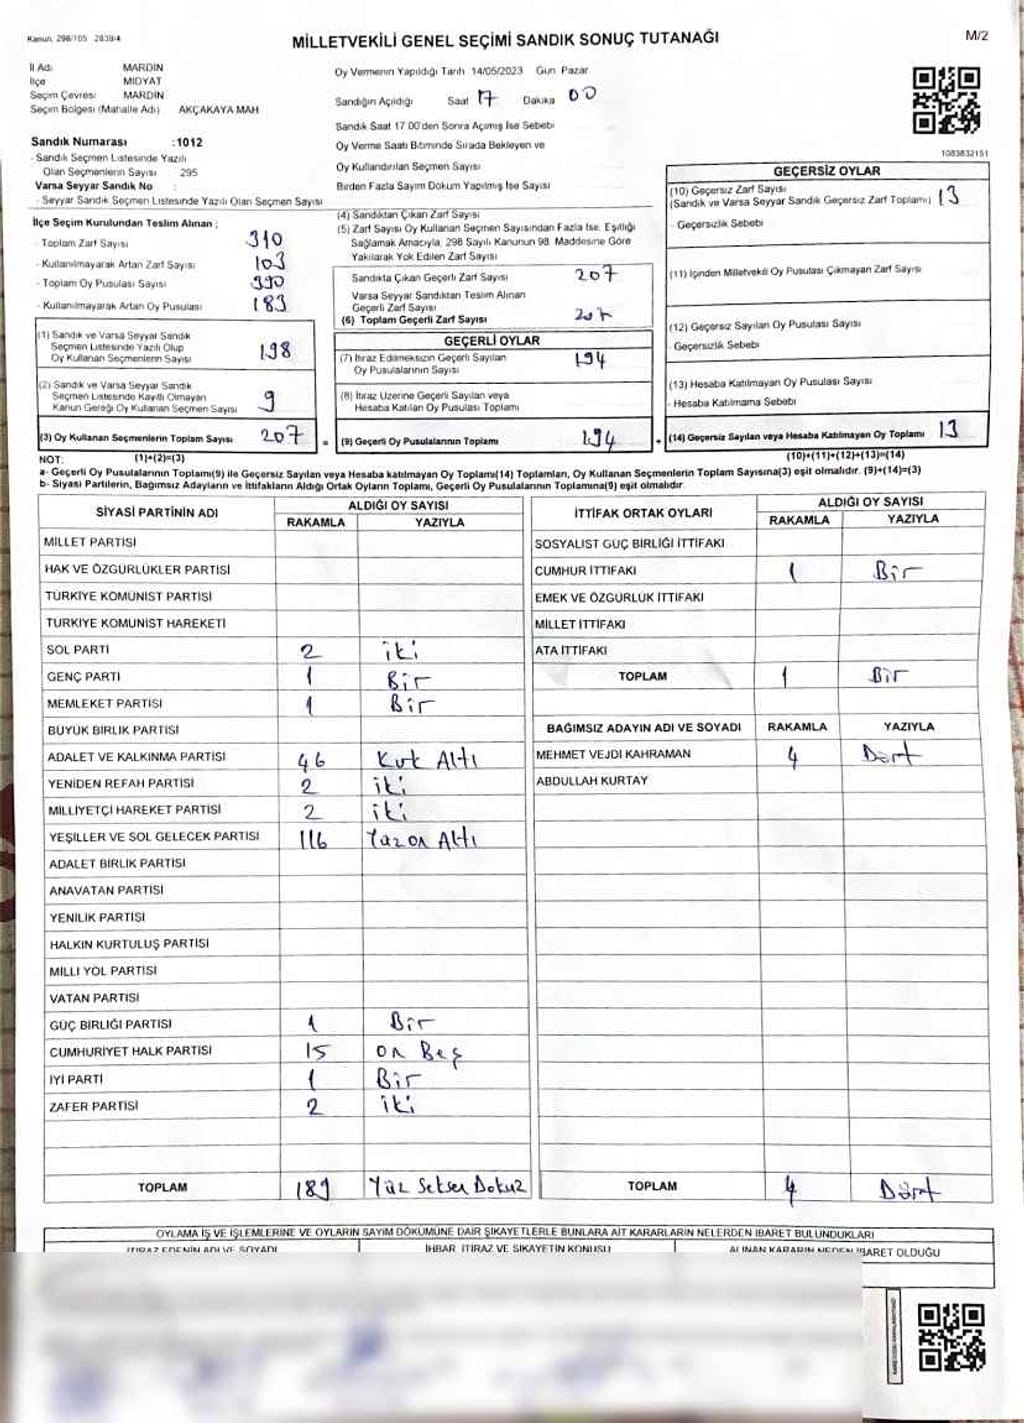 Kanun: 298/105 2839/4
MİLLETVEKİLİ GENEL SEÇİMİ SANDIK SONUÇ TUTANAĞI
M/2
İl Adı MARDİN
İlçe MİDYAT
Seçim Çevresi MARDİN
Seçim Bölgesi (Mahalle Adı) AKÇAKAYA MAH
Oy Vermenin Yapıldığı Tarih 14/05/2023 Gün Pazar
Sandığın Açıldığı Saat 17 Dakika 00
Sandık Saat 17 00'den Sonra Açımış İse Sebebi
Oy Verme Saati Bitiminde Sırada Bekleyen ve
Oy Kullandırılan Seçmen Sayısı
Birden Fazla Sayım Döküm Yapılmış İse Sayısı
1083832151
Sandık Numarası :1012
- Sandık Seçmen Listesinde Yazılı
Olan Seçmenlerin Sayısı 295
Varsa Seyyar Sandık No :
- Seyyar Sandık Seçmen Listesinde Yazılı Olan Seçmen Sayısı
İlçe Seçim Kurulundan Teslim Alınan ;
- Toplam Zarf Sayısı 310
- Kullanılmayarak Artan Zarf Sayısı 103
- Toplam Oy Pusulası Sayısı 390
- Kullanılmayarak Artan Oy Pusulası 183
(1) Sandık ve Varsa Seyyar Sandık
Seçmen Listesinde Yazılı Olup
Oy Kullanan Seçmenlerin Sayısı 198
(2) Sandık ve Varsa Seyyar Sandık
Seçmen Listesinde Kayıtlı Olmayan
Kanun Gereği Oy Kullanan Seçmen Sayısı 9
(3) Oy Kullanan Seçmenlerin Toplam Sayısı 207 =
(4) Sandıktan Çıkan Zarf Sayısı
(5) Zarf Sayısı Oy Kullanan Seçmen Sayısından Fazla İse, Eşitliği
Sağlamak Amacıyla, 298 Sayılı Kanunun 98 Maddesine Göre
Yakılarak Yok Edilen Zarf Sayısı
Sandıkta Çıkan Geçerli Zarf Sayısı 207
Varsa Seyyar Sandıktan Teslim Alınan
Geçerli Zarf Sayısı
(6) Toplam Geçerli Zarf Sayısı 207
GEÇERLİ OYLAR
(7) İtiraz Edilmeksizin Geçerli Sayılan
Oy Pusulalarının Sayısı 194
(8) İtiraz Üzerine Geçerli Sayılan veya
Hesaba Katılan Oy Pusulası Toplamı
(9) Geçerli Oy Pusulalarının Toplamı 194 +
GEÇERSİZ OYLAR
(10) Geçersiz Zarf Sayısı
(Sandık ve Varsa Seyyar Sandık Geçersiz Zarf Toplamı) 13
- Geçersizlik Sebebi
(11) İçinden Milletvekili Oy Pusulası Çıkmayan Zarf Sayısı
(12) Geçersiz Sayılan Oy Pusulası Sayısı
- Geçersizlik Sebebi
(13) Hesaba Katılmayan Oy Pusulası Sayısı
- Hesaba Katılmama Sebebi
(14) Geçersiz Sayılan veya Hesaba Katılmayan Oy Toplamı 13
NOT: (1)+(2)=(3)
(10)+(11)+(12)+(13)=(14)
a- Geçerli Oy Pusulalarının Toplamı(9) ile Geçersiz Sayılan veya Hesaba katılmayan Oy Toplamı(14) Toplamları, Oy Kullanan Seçmenlerin Toplam Sayısına(3) eşit olmalıdır. (9)+(14)=(3)
b- Siyasi Partilerin, Bağımsız Adayların ve İttifakların Aldığı Ortak Oyların Toplamı, Geçerli Oy Pusulalarının Toplamına(9) eşit olmalıdır.
SİYASİ PARTİNİN ADI ALDIĞI OY SAYISI
RAKAMLA YAZIYLA
MİLLET PARTİSİ
HAK VE ÖZGÜRLÜKLER PARTİSİ
TÜRKİYE KOMÜNİST PARTİSİ
TÜRKİYE KOMÜNİST HAREKETİ
SOL PARTİ 2 iki
GENÇ PARTİ 1 Bir
MEMLEKET PARTİSİ 1 Bir
BÜYÜK BİRLİK PARTİSİ
ADALET VE KALKINMA PARTİSİ 46 Kırk Altı
YENİDEN REFAH PARTİSİ 2 iki
MİLLİYETÇİ HAREKET PARTİSİ 2 iki
YEŞİLLER VE SOL GELECEK PARTİSİ 116 Yüz on Altı
ADALET BİRLİK PARTİSİ
ANAVATAN PARTİSİ
YENİLİK PARTİSİ
HALKIN KURTULUŞ PARTİSİ
MİLLİ YOL PARTİSİ
VATAN PARTİSİ
GÜÇ BİRLİĞİ PARTİSİ 1 Bir
CUMHURİYET HALK PARTİSİ 15 on Beş
İYİ PARTİ 1 Bir
ZAFER PARTİSİ 2 iki
TOPLAM 189 Yüz Seksen Dokuz
İTTİFAK ORTAK OYLARI ALDIĞI OY SAYISI
RAKAMLA YAZIYLA
SOSYALİST GÜÇ BİRLİĞİ İTTİFAKI
CUMHUR İTTİFAKI 1 Bir
EMEK VE ÖZGÜRLÜK İTTİFAKI
MİLLET İTTİFAKI
ATA İTTİFAKI
TOPLAM 1 Bir
BAĞIMSIZ ADAYIN ADI VE SOYADI RAKAMLA YAZIYLA
MEHMET VEJDİ KAHRAMAN 4 Dört
ABDULLAH KURTAY
TOPLAM 4 Dört
OYLAMA İŞ VE İŞLEMLERİNE VE OYLARIN SAYIM DÖKÜMÜNE DAİR ŞİKAYETLERLE BUNLARA AİT KARARLARIN NELERDEN İBARET BULUNDUKLARI
İTİRAZ EDENİN ADI VE SOYADI İHBAR İTİRAZ VE ŞİKAYETİN KONUSU ALINAN KARARIN NEDEN İBARET OLDUĞU